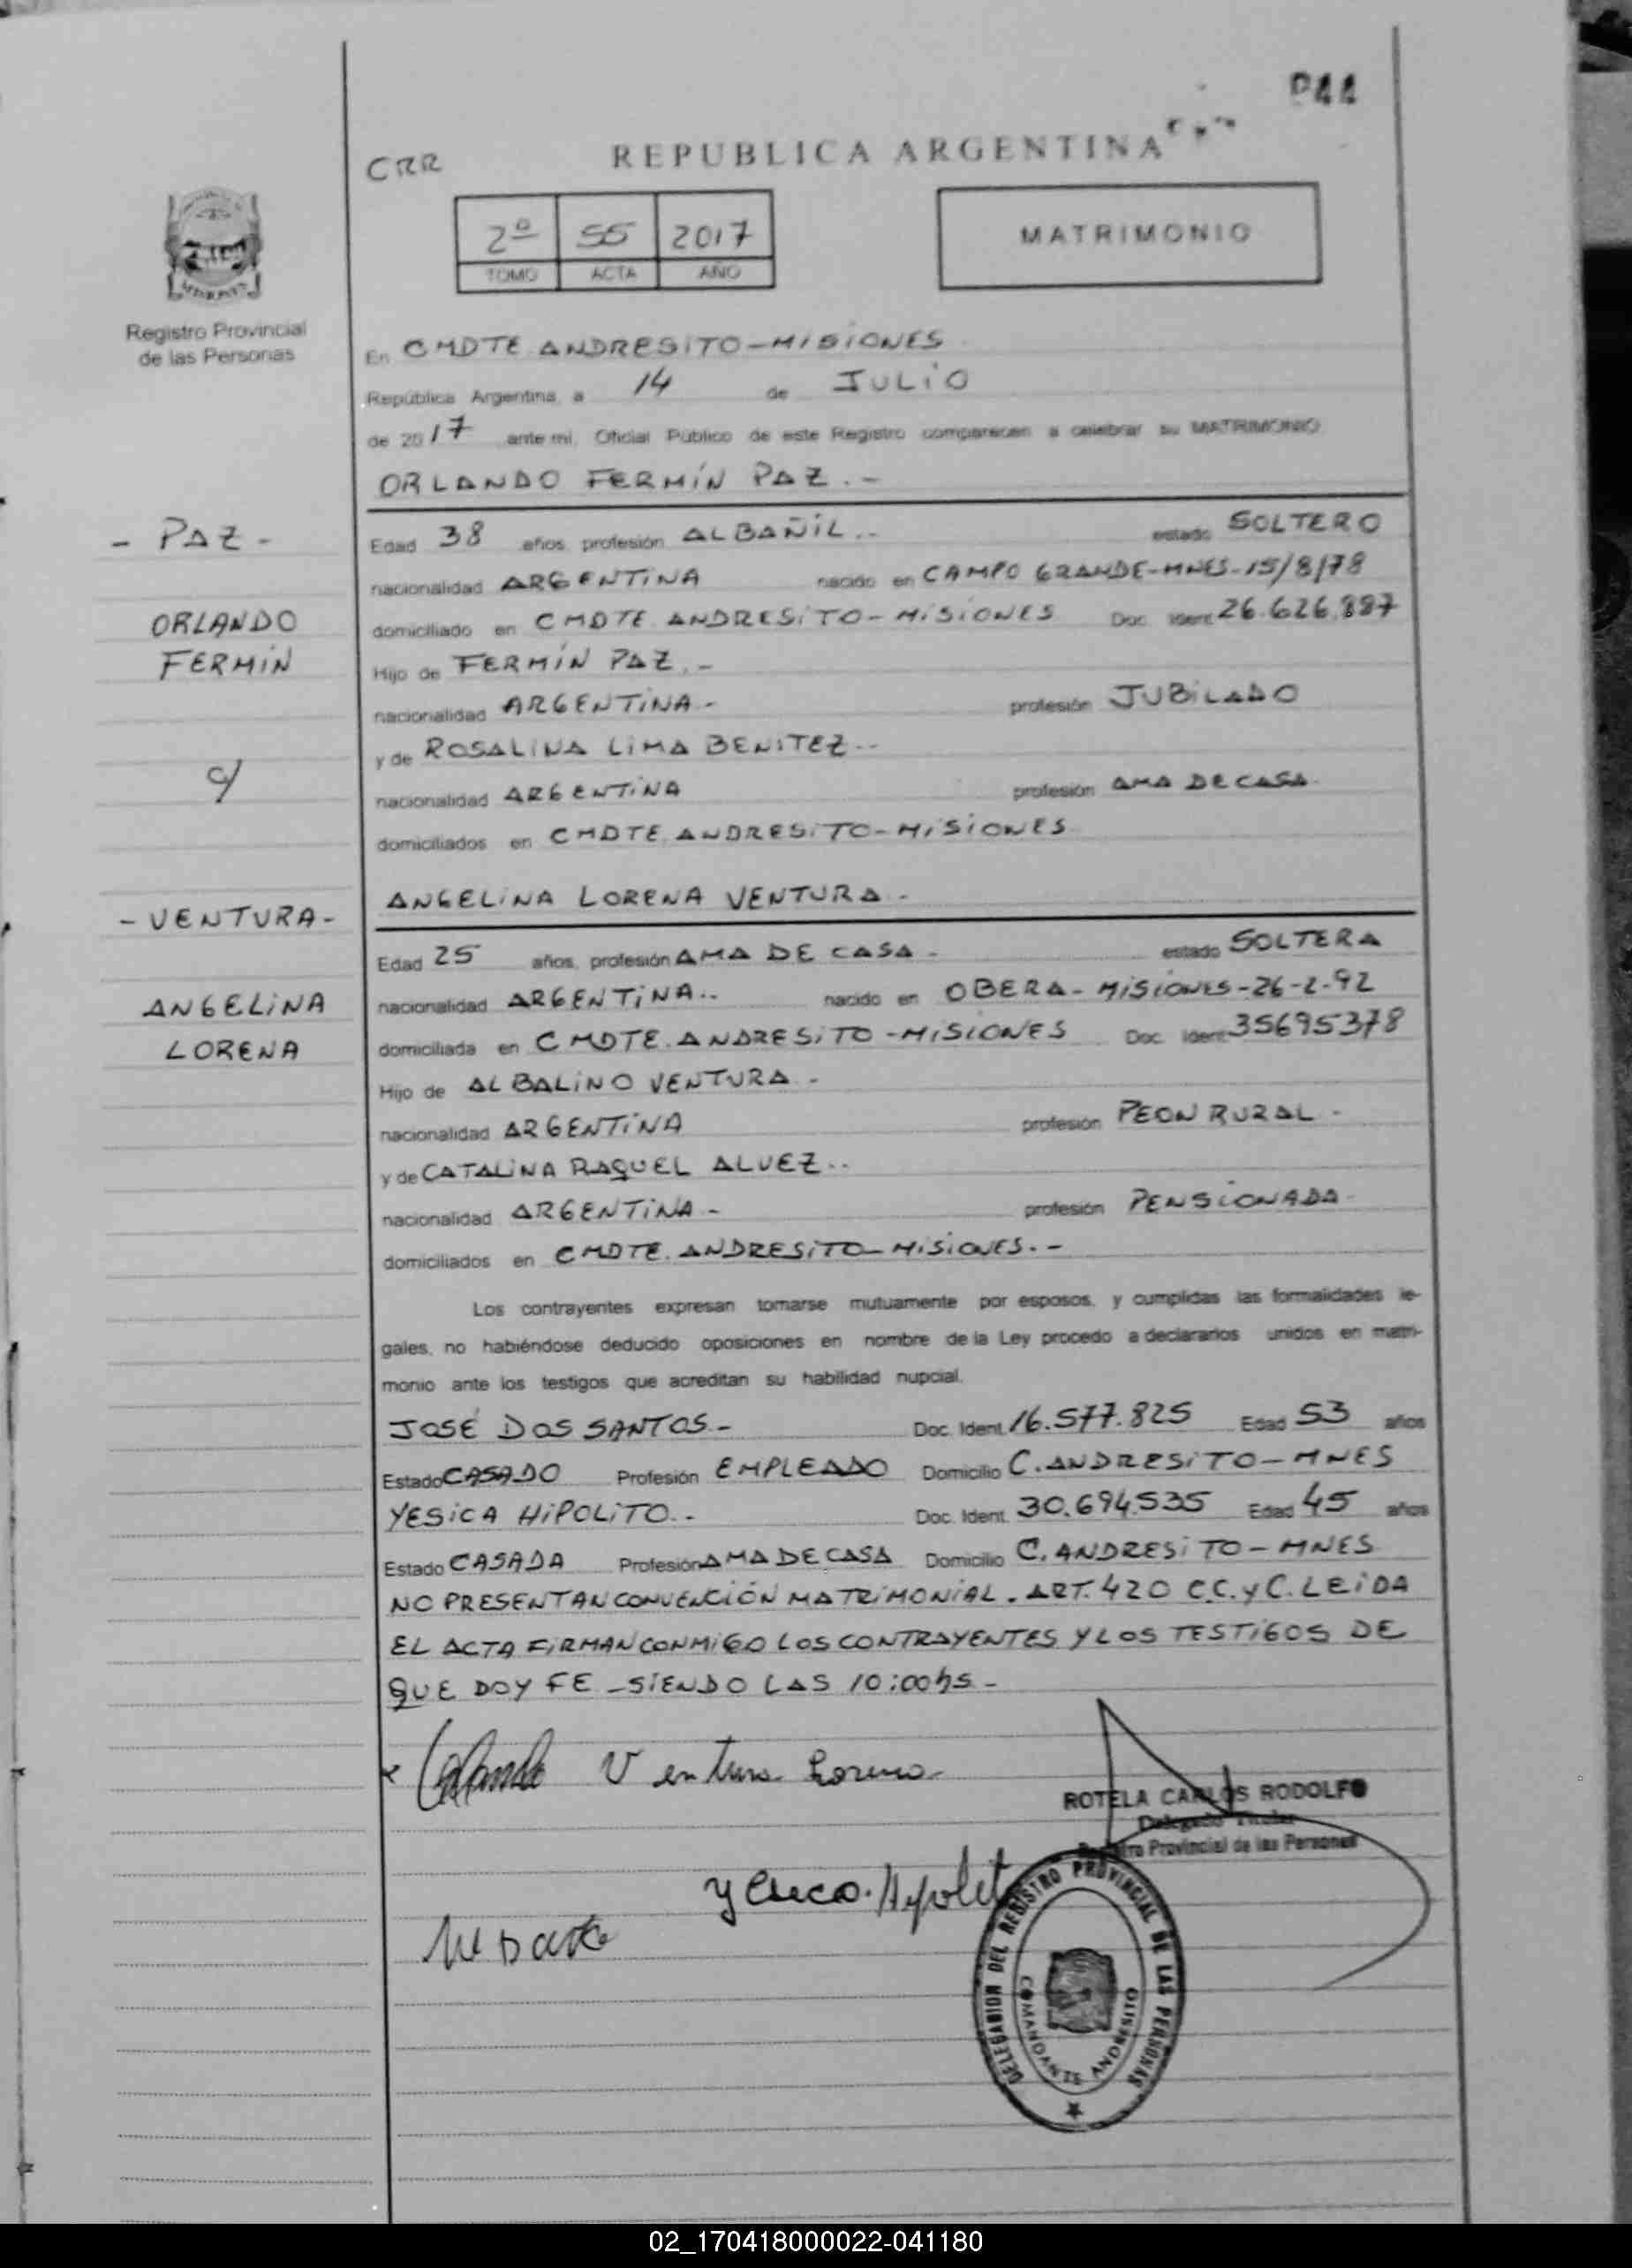 P44
CRR
REPUBLICA ARGENTINA
2º 55 2017
TOMO ACTA AÑO
MATRIMONIO
Registro Provincial
de las Personas
En CMDTE ANDRESITO-MISIONES
República Argentina, a 14 de JULIO
de 2017 ante mi, Oficial Público de este Registro comparecen a celebrar su MATRIMONIO
ORLANDO FERMÍN PAZ.-
- PAZ -
ORLANDO
FERMÍN
c/
- VENTURA -
ANGELINA
LORENA
Edad 38 años, profesión ALBAÑIL.- estado SOLTERO
nacionalidad ARGENTINA nacido en CAMPO GRANDE-MNES-15/8/78
domiciliado en CMDTE ANDRESITO-MISIONES Doc. Ident 26.626.887
Hijo de FERMÍN PAZ.-
nacionalidad ARGENTINA- profesión JUBILADO
y de ROSALINA LIMA BENITEZ.-
nacionalidad ARGENTINA profesión AMA DE CASA.
domiciliados en CMDTE.ANDRESITO-MISIONES
ANGELINA LORENA VENTURA.-
Edad 25 años, profesión AMA DE CASA- estado SOLTERA
nacionalidad ARGENTINA.. nacido en OBERA-MISIONES-26-2-92
domiciliada en CMDTE.ANDRESITO-MISIONES Doc. Ident 35695378
Hijo de ALBALINO VENTURA-
nacionalidad ARGENTINA profesión PEON RURAL-
y de CATALINA RAQUEL ALVEZ..
nacionalidad ARGENTINA- profesión PENSIONADA-
domiciliados en CMDTE.ANDRESITO-MISIONES.-
Los contrayentes expresan tomarse mutuamente por esposos, y cumplidas las formalidades le-
gales, no habiéndose deducido oposiciones en nombre de la Ley procedo a declararlos unidos en matri-
monio ante los testigos que acreditan su habilidad nupcial.
JOSÉ DOS SANTOS- Doc. Ident. 16.577.825 Edad 53 años
Estado CASADO Profesión EMPLEADO Domicilio C.ANDRESITO-MNES
YESICA HIPOLITO.- Doc. Ident. 30.694.535 Edad 45 años
Estado CASADA Profesión AMA DE CASA Domicilio C.ANDRESITO-MNES
NO PRESENTAN CONVENCIÓN MATRIMONIAL. ART.420 C.C.y C. LEIDA
EL ACTA FIRMAN CONMIGO LOS CONTRAYENTES Y LOS TESTIGOS DE
QUE DOY FE-SIENDO LAS 10:00hs-
Orlando Ventura Lorena
ROTELA CARLOS RODOLFO
Delegado Titular
Registro Provincial de las Personas
Yesica Hipolito
DELEGACION DEL REGISTRO PROVINCIAL DE LAS PERSONAS
COMANDANTE ANDRESITO
02_170418000022-041180